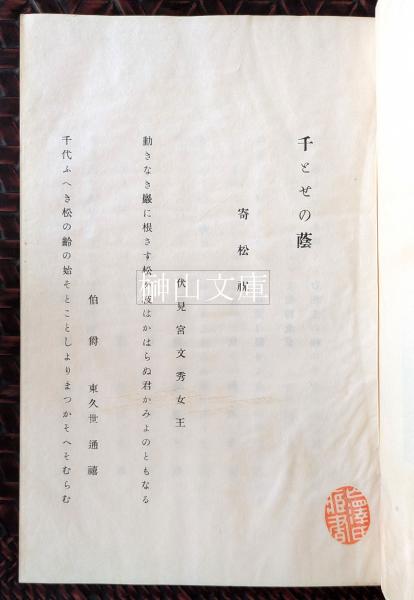 千とせの蔭
寄松祝
伏見宮文秀女王
動きなき巖に根さす松か枝はかはらぬ君かみよのともなる
伯爵 東久世通禧
千代ふへき松の齡の始そとことしよりまつかそへそむらむ
榊山文庫